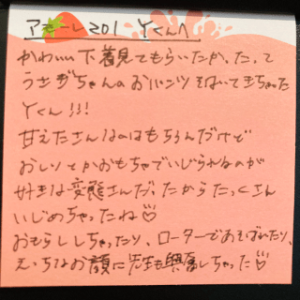 アモーレ201 Yくんへ
かわいい下着見てもらいたかったって
うさぎちゃんのおパンツをはいてきちゃった
Yくん!!!
甘えたさんなのはもちろんだけど
おしりとかおもちゃでいじられるのが
好きな変態さんだったからたっくさん
いじめちゃったね♡
おもらししちゃったり、ローターであそばれたり、
えっちなお顔に先生も興奮しちゃった♡